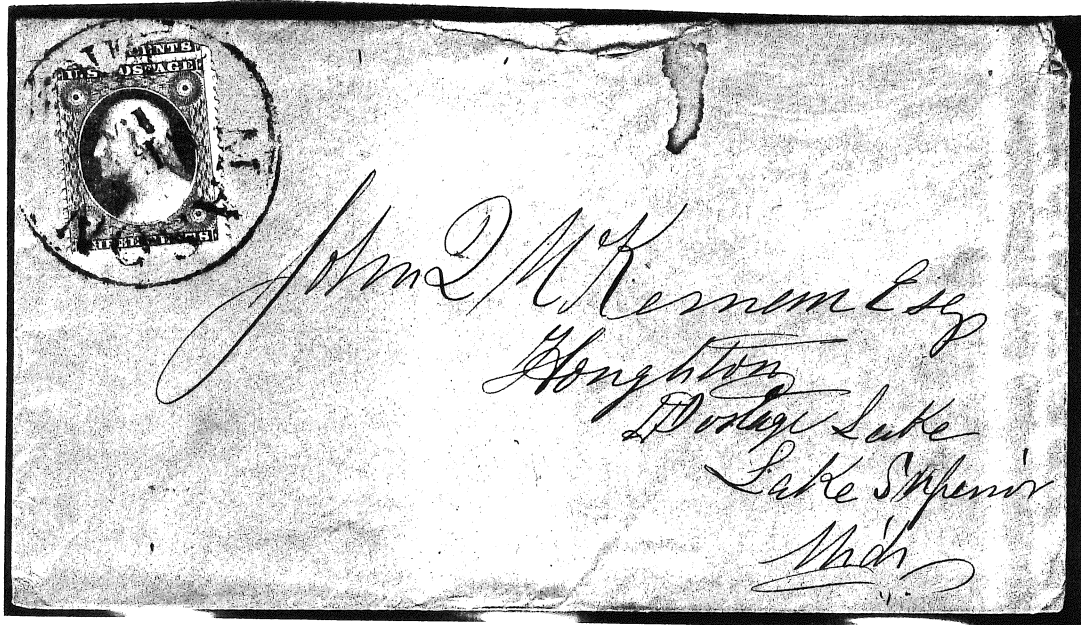 CENTS
U.S. POSTAGE
THREE CENTS
John Q McKernem Esq
Houghton
Portage Lake
Lake Superior
Mich